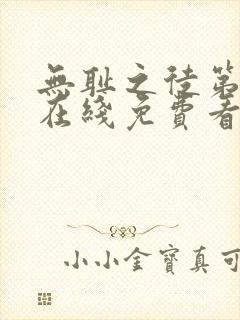 無耻之徒第
在綫免費看
小小金寶真可